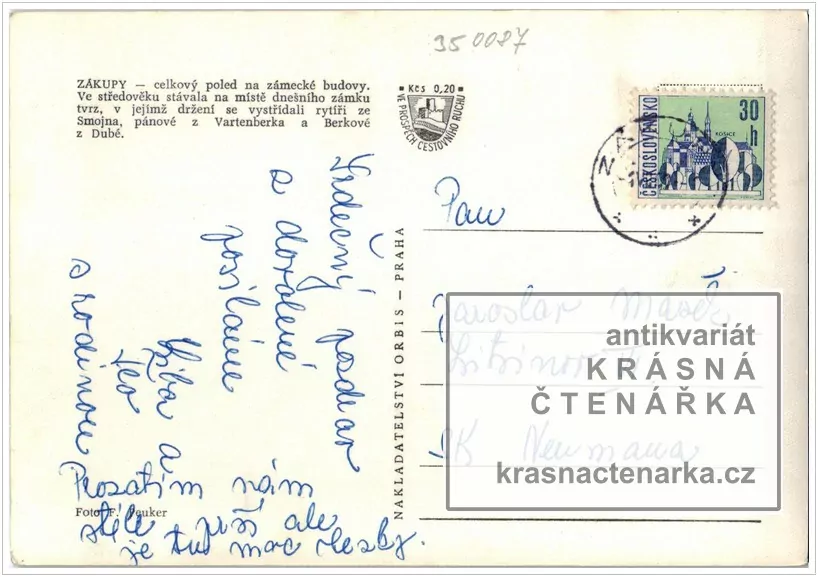 350087
ZÁKUPY — celkový poled na zámecké budovy.
Ve středověku stávala na místě dnešního zámku
tvrz, v jejímž držení se vystřídali rytíři ze
Smojna, pánové z Vartenberka a Berkové
z Dubé.
Kčs 0,20
VE PROSPĚCH CESTOVNÍHO RUCHU
ČESKOSLOVENSKO
30
h
KOŠICE
Srdečný pozdrav
z dovolené
posíláme
Liba a
Leo
s rodinou
Prozatím nám
stále prší ale
je tu moc hezky.
Foto F. Peuker
NAKLADATELSTVÍ ORBIS — PRAHA
Pan
Jaroslav
Litvínov
SK Neumana
antikvariát
KRÁSNÁ
ČTENÁŘKA
krasnactenarka.cz